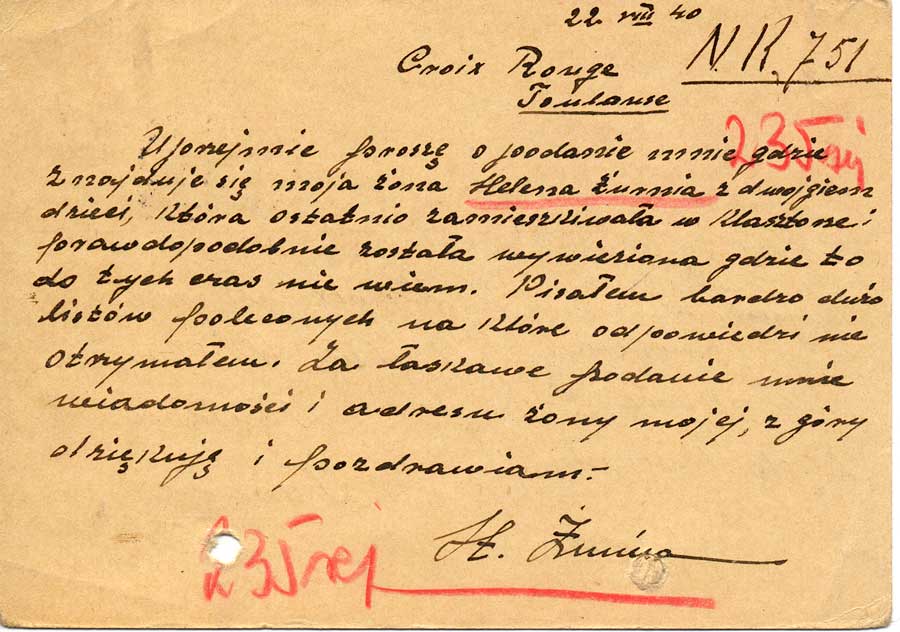 22 VIII 40
N.R. 751
Croix Rouge
Toulouse
235 rej
Uprzejmie proszę o podanie mnie gdzie
znajduje się moja żona Helena Żurnia z dwojgiem
dzieci, która ostatnio zamieszkiwała w klasztorze i
prawdopodobnie została wywieziona gdzie to
do tych czas nie wiem. Pisałem bardzo dużo
listów poleconych na które odpowiedzi nie
otrzymałem. Za łaskawe podanie mnie
wiadomości i adresu żony mojej, z góry
dziękuję i pozdrawiam.-
St.
235 rej